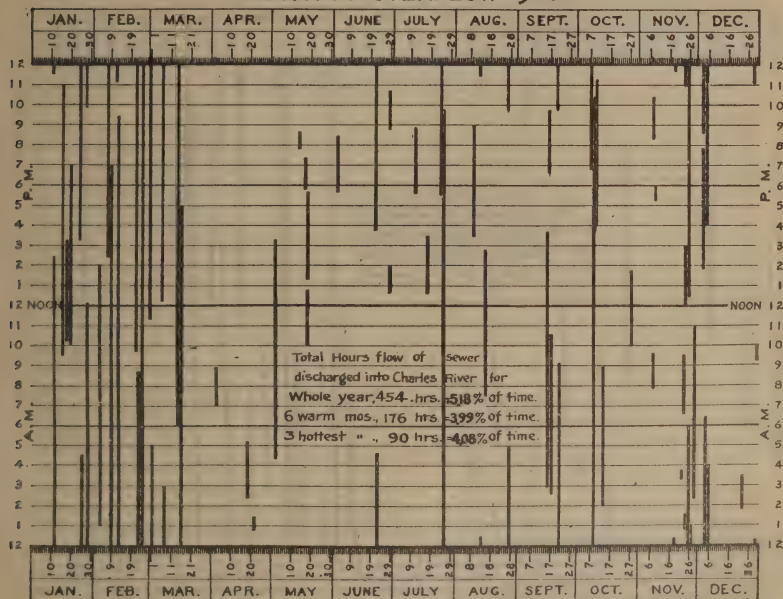 JAN. FEB. MAR. APR. MAY JUNE JULY AUG. SEPT. OCT. NOV. DEC.
10 20 30 9 19 1 11 21 10 20 10 20 30 9 19 29 9 19 29 8 18 28 7 17 27 7 17 27 6 16 26 6 16 26
12 12
11 11
10 10
9 9
8 8
7 7
P.M. 6 6 P.M.
5 5
4 4
3 3
2 2
1 1
NOON 12 NOON 12
11 11
10 10
Total Hours flow of sewer
9 9
discharged into Charles River for
8 8
Whole year, 454 . hrs. =5.18% of time.
7 7
6 warm mos., 176 hrs. =3.99% of time.
A.M. 6 6 A.M.
3 hottest " ., 90 hrs. =4.08% of time.
5 5
4 4
3 3
2 2
1 1
12 12
10 20 30 9 19 1 11 21 10 20 10 20 30 9 19 29 9 19 29 8 18 28 7 17 27 7 17 27 6 16 26 6 16 26
JAN. FEB. MAR. APR. MAY JUNE JULY AUG. SEPT. OCT. NOV. DEC.